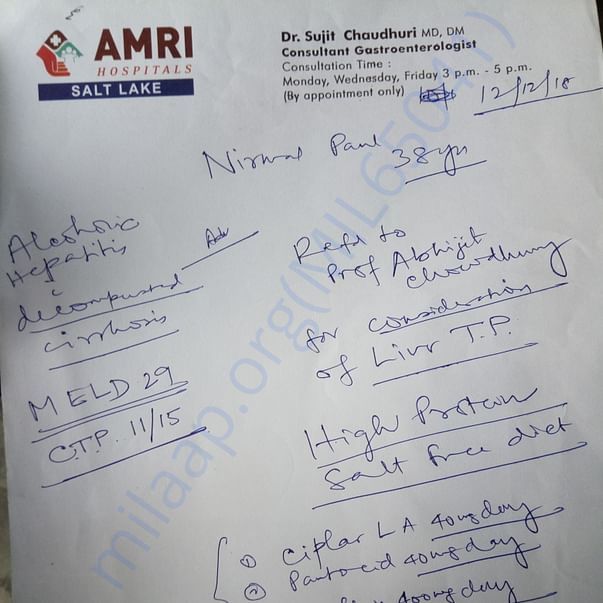 AMRI
HOSPITALS
SALT LAKE
Dr. Sujit Chaudhuri MD, DM
Consultant Gastroenterologist
Consultation Time :
Monday, Wednesday, Friday 3 p.m. - 5 p.m.
(By appointment only)
12/12/18
Nirmal Paul 38 yrs
Alcoholic
Hepatitis
decompasted
cirrhosis
MELD 29
C.T.P. 11/15
Adv
Refd to
Prof Abhijit
Chowdhury
for consideration
of Liver T.P.
High Protein
Salt free diet
① Ciplar LA 40mg day
② Pantocid 40mg day
400mg day
milaap.org(MIL65041)